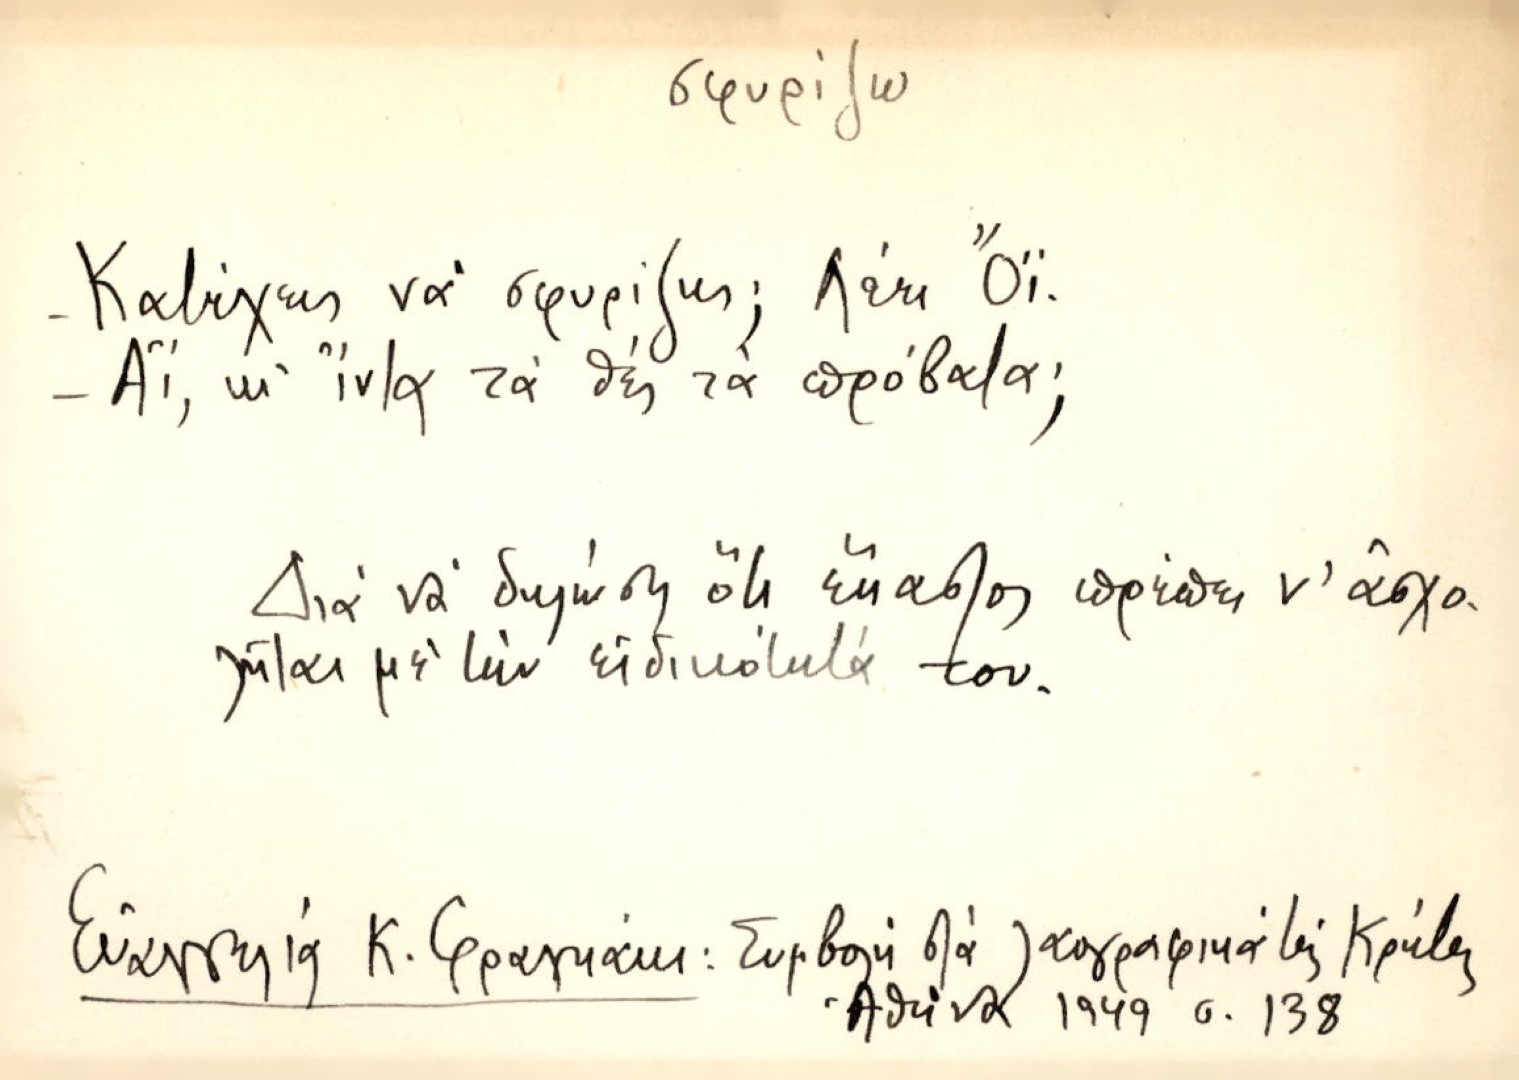 σφυρίζω
- Κατέχεις νὰ σφυρίζῃς; Λέει Ὄϊ.
- Ἄϊ, κι ἴντα τὰ θές τὰ πρόβατα;
Διά νὰ δηλώσῃ ὅτι ἕκαστος πρέπει ν' ἀσχο-
λῆται μὲ τὴν εἰδικότητά του.
Εὐαγγελία Κ. Φραγκάκι: Συμβολὴ στὰ λαογραφικά τῆς Κρήτης
Ἀθήνα 1949 σ. 138